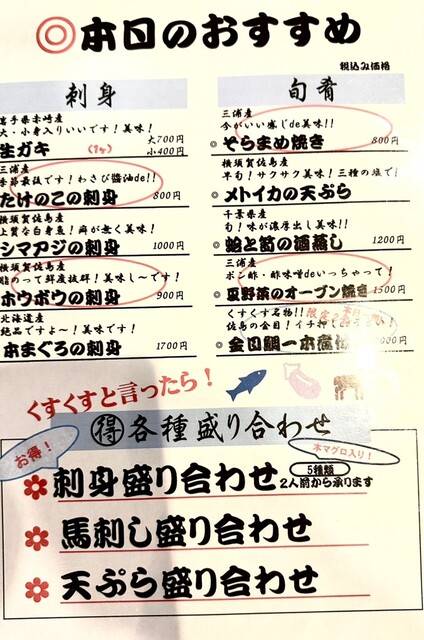 ◎本日のおすすめ
税込み価格
刺身
岩手県赤崎産
大・小身入りいいです!美味!
生ガキ (1ヶ) 大700円
小400円
三浦産
季節最後です!わさび醤油de!!
たけのこの刺身 800円
横須賀佐島産
上質な白身魚!癖が無く美味!
シマアジの刺身 1000円
横須賀佐島産
脂のって鮮度抜群!美味し～です!
ホウボウの刺身 900円
北海道産
絶品ですよ～!美味です!
本まぐろの刺身 1700円
旬肴
三浦産
今がいい感じde美味!!
◎そらまめ焼き 800円
横須賀佐島産
早旬!サクサク美味!三種の塩で!
◎メトイカの天ぷら
千葉県産
旬!味が濃厚出し美味!!
◎蛤と筍の酒蒸し 1200円
三浦産
ポン酢・酢味噌deいっちゃって!
◎夏野菜のオーブン焼き 1500円
くすくす名物!! 限定
佐島の金目!イチ押し
◎金目鯛一本煮付
くすくすと言ったら!
得 各種盛り合わせ
お得!
本マグロ入り!
刺身盛り合わせ 5種類
2人前から承ります
馬刺し盛り合わせ
天ぷら盛り合わせ